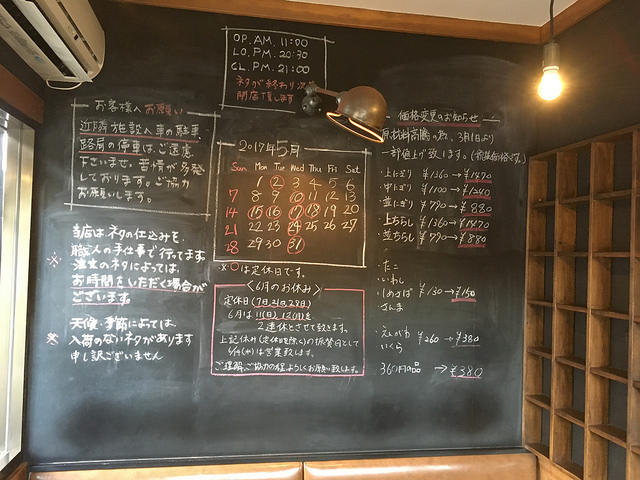 OP. AM. 11:00
LO. PM. 20:30
CL. PM. 21:00
ネタが終わり次第
閉店致します
お客様へお願い
近隣施設への車の駐車、
路肩の停車はご遠慮
下さいませ。苦情が多発
しております。ご協力
お願いします。
※ 当店はネタの仕込みを、
職人の手仕事で行ってます。
注文のネタによっては、
お時間をいただく場合が
ございます。
※ 天候・季節によっては、
入荷のないネタがあります
申し訳ございません
2017年5月
Sun Mon Tue Wed Thu Fri Sat
1 2 3 4 5 6
7 8 9 10 11 12 13
14 15 16 17 18 19 20
21 22 23 24 25 26 27
28 29 30 31
※○は定休日です。
<6月のお休み>
定休日(7日,21日,28日)
6月は 11(日) 12(月)を
2連休とさせて致します。
上記休み(定休日を除く)の振替日として
6/14(水)は営業致します。
ご理解、ご協力の程よろしくお願い致します。
価格変更のお知らせ
原材料高騰の為、3月1日より
一部値上げ致します。(税抜価格です)
・上にぎり ¥1360→¥1470
・中にぎり ¥1100→¥1240
・並にぎり ¥790→¥880
・上ちらし ¥1360→¥1470
・並ちらし ¥790→¥880
・たこ
・いわし
・しめさば ¥130→¥150
・さんま
・えんがわ ¥260→¥380
・いくら
360円の品 →¥380